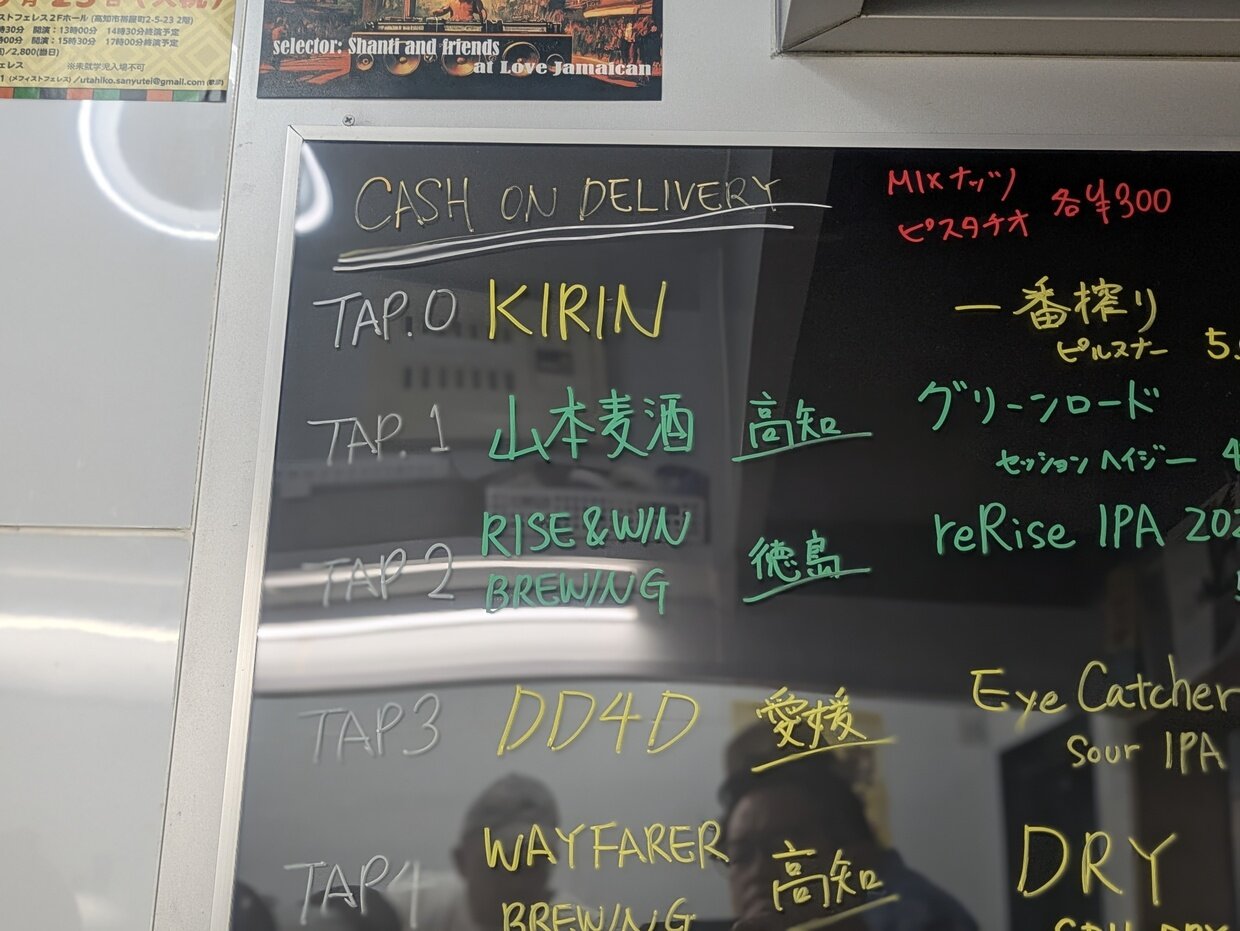 ストフェレス2Fホール (高知市帯屋町2-5-23 2階)
開演：13時00分 14時30分終演予定
開演：15時30分 17時00分終演予定
/2,800(当日)
※未就学児入場不可
(メフィストフェレス)/utahiko.sanyutei@gmail.com
selector: Shanti and friends
at Love Jamaican
CASH ON DELIVERY
MIXナッツ
ピスタチオ 各¥300
TAP.0 KIRIN 一番搾り
ピルスナー
TAP.1 山本麦酒 高知 グリーンロード
セッションヘイジー
TAP2 RISE&WIN BREWING 徳島 reRise IPA
TAP3 DD4D 愛媛 Eye Catcher
Sour IPA
TAP4 WAYFARER BREWING 高知 DRY